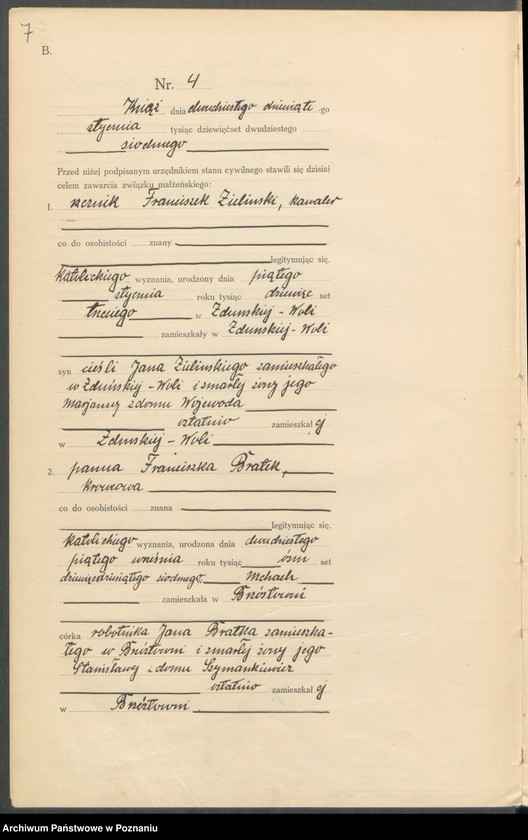 7
B.
Nr. 4
Książ dnia dwudziestego dziewiąte-go
stycznia tysiąc dziewięćset dwudziestego
siodmego
Przed niżej podpisanym urzędnikiem stanu cywilnego stawili się dzisiaj
celem zawarcia związku małżeńskiego:
1. ucznik Franciszek Zielinski, kawaler
co do osobistości znany
legitymując się.
katolickiego wyznania, urodzony dnia piątego
stycznia roku tysiąc dziewięc set
trzeciego w Zdunskiej-Woli
zamieszkały w Zdunskiej-Woli
syn cieśli Jana Zielinskiego zamieszkałego
w Zduńskiej-Woli i zmarłej żony jego
Marjanny z domu Wojewoda
ostatnio zamieszkał ej
w Zdunskiej-Woli
2. panna Franciszka Bratek,
krawcowa
co do osobistości znana
legitymując się.
katolickiego wyznania, urodzona dnia dwudziestego
piątego września roku tysiąc ósm set
dziewięcdziesiątego siodmego, Mchach
zamieszkała w Brzóstowni
córka robotnika Jana Bratka zamieszka-
łego w Brzóstowni i zmarłej żony jego
Stanisławy z domu Szymankiewicz
ostatnio zamieszkał ej
w Brzóstowni
Archiwum Państwowe w Poznaniu